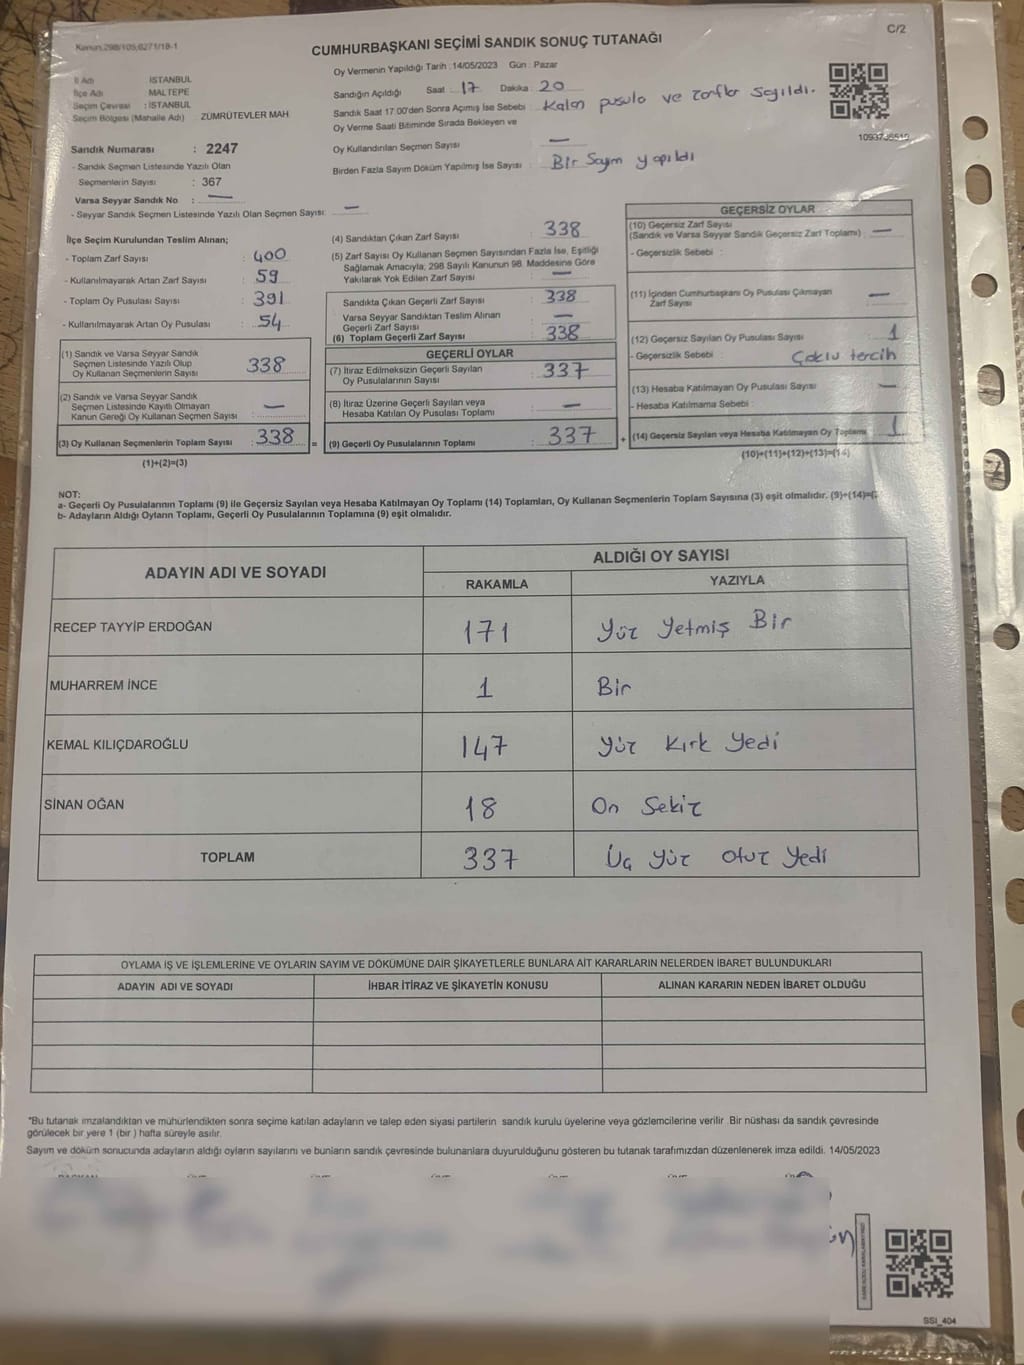 Kanun.298/105,6271/1B-1
C/2
CUMHURBAŞKANI SEÇİMİ SANDIK SONUÇ TUTANAĞI
İl Adı İSTANBUL
İlçe Adı MALTEPE
Seçim Çevresi : İSTANBUL
Seçim Bölgesi (Mahalle Adı) ZÜMRÜTEVLER MAH
Sandık Numarası : 2247
- Sandık Seçmen Listesinde Yazılı Olan
Seçmenlerin Sayısı : 367
Varsa Seyyar Sandık No : —
- Seyyar Sandık Seçmen Listesinde Yazılı Olan Seçmen Sayısı: —
Oy Vermenin Yapıldığı Tarih : 14/05/2023 Gün : Pazar
Sandığın Açıldığı Saat : 17 Dakika : 20
Sandık Saat 17:00'den Sonra Açımış İse Sebebi : Kalan pusula ve zarflar sayıldı.
Oy Verme Saati Bitiminde Sırada Bekleyen ve
Oy Kullandırılan Seçmen Sayısı : —
Birden Fazla Sayım Döküm Yapılmış İse Sayısı : Bir Sayım yapıldı
İlçe Seçim Kurulundan Teslim Alınan;
- Toplam Zarf Sayısı : 400
- Kullanılmayarak Artan Zarf Sayısı : 59
- Toplam Oy Pusulası Sayısı : 391
- Kullanılmayarak Artan Oy Pusulası : 54
(1) Sandık ve Varsa Seyyar Sandık
Seçmen Listesinde Yazılı Olup
Oy Kullanan Seçmenlerin Sayısı : 338
(2) Sandık ve Varsa Seyyar Sandık
Seçmen Listesinde Kayıtlı Olmayan
Kanun Gereği Oy Kullanan Seçmen Sayısı : —
(3) Oy Kullanan Seçmenlerin Toplam Sayısı : 338 =
(1)+(2)=(3)
(4) Sandıktan Çıkan Zarf Sayısı : 338
(5) Zarf Sayısı Oy Kullanan Seçmen Sayısından Fazla İse, Eşitliği
Sağlamak Amacıyla; 298 Sayılı Kanunun 98. Maddesine Göre
Yakılarak Yok Edilen Zarf Sayısı : —
Sandıkta Çıkan Geçerli Zarf Sayısı : 338
Varsa Seyyar Sandıktan Teslim Alınan
Geçerli Zarf Sayısı : —
(6) Toplam Geçerli Zarf Sayısı : 338
GEÇERLİ OYLAR
(7) İtiraz Edilmeksizin Geçerli Sayılan
Oy Pusulalarının Sayısı : 337
(8) İtiraz Üzerine Geçerli Sayılan veya
Hesaba Katılan Oy Pusulası Toplamı : —
(9) Geçerli Oy Pusulalarının Toplamı : 337 +
GEÇERSİZ OYLAR
(10) Geçersiz Zarf Sayısı
(Sandık ve Varsa Seyyar Sandık Geçersiz Zarf Toplamı) : —
- Geçersizlik Sebebi :
(11) İçinden Cumhurbaşkanı Oy Pusulası Çıkmayan
Zarf Sayısı : —
(12) Geçersiz Sayılan Oy Pusulası Sayısı : 1
- Geçersizlik Sebebi : Çoklu tercih
(13) Hesaba Katılmayan Oy Pusulası Sayısı : —
- Hesaba Katılmama Sebebi :
(14) Geçersiz Sayılan veya Hesaba Katılmayan Oy Toplamı : 1
(10)+(11)+(12)+(13)=(14)
NOT:
a- Geçerli Oy Pusulalarının Toplamı (9) ile Geçersiz Sayılan veya Hesaba Katılmayan Oy Toplamı (14) Toplamları, Oy Kullanan Seçmenlerin Toplam Sayısına (3) eşit olmalıdır. (9)+(14)=(
b- Adayların Aldığı Oyların Toplamı, Geçerli Oy Pusulalarının Toplamına (9) eşit olmalıdır.
ADAYIN ADI VE SOYADI
ALDIĞI OY SAYISI
RAKAMLA YAZIYLA
RECEP TAYYİP ERDOĞAN 171 Yüz Yetmiş Bir
MUHARREM İNCE 1 Bir
KEMAL KILIÇDAROĞLU 147 Yüz Kırk Yedi
SİNAN OĞAN 18 On Sekiz
TOPLAM 337 Üç Yüz Otuz Yedi
OYLAMA İŞ VE İŞLEMLERİNE VE OYLARIN SAYIM VE DÖKÜMÜNE DAİR ŞİKAYETLERLE BUNLARA AİT KARARLARIN NELERDEN İBARET BULUNDUKLARI
ADAYIN ADI VE SOYADI İHBAR İTİRAZ VE ŞİKAYETİN KONUSU ALINAN KARARIN NEDEN İBARET OLDUĞU
*Bu tutanak imzalandıktan ve mühürlendikten sonra seçime katılan adayların ve talep eden siyasi partilerin sandık kurulu üyelerine veya gözlemcilerine verilir. Bir nüshası da sandık çevresinde
görülecek bir yere 1 (bir ) hafta süreyle asılır.
Sayım ve döküm sonucunda adayların aldığı oyların sayılarını ve bunların sandık çevresinde bulunanlara duyurulduğunu gösteren bu tutanak tarafımızdan düzenlenerek imza edildi. 14/05/2023
SSI_404